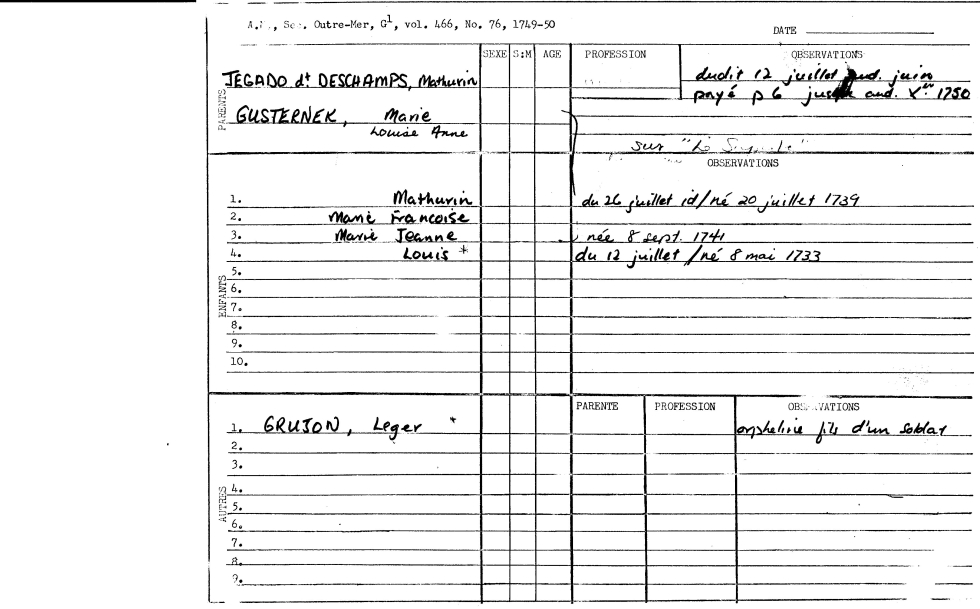 A.N., Sec. Outre-Mer, G¹, vol. 466, No. 76, 1749-50
DATE
SEXE S:M AGE PROFESSION OBSERVATIONS
PARENTS
JEGADO dt DESCHAMPS, Mathurin dudit 12 juillet aud. juin
payé p 6 jusqu aud. Xer 1750
GUSTERNEK, Marie
Louise Anne
sur "Le
OBSERVATIONS
ENFANTS
1. Mathurin du 26 juillet id/né 20 juillet 1739
2. Marie Francoise
3. Marie Jeanne née 8 sept. 1741
4. Louis * du 12 juillet /né 8 mai 1733
5.
6.
7.
8.
9.
10.
PARENTE PROFESSION OBSERVATIONS
AUTRES
1. GRUJON, Leger * orpheline fils d'un soldat
2.
3.
4.
5.
6.
7.
8.
9.